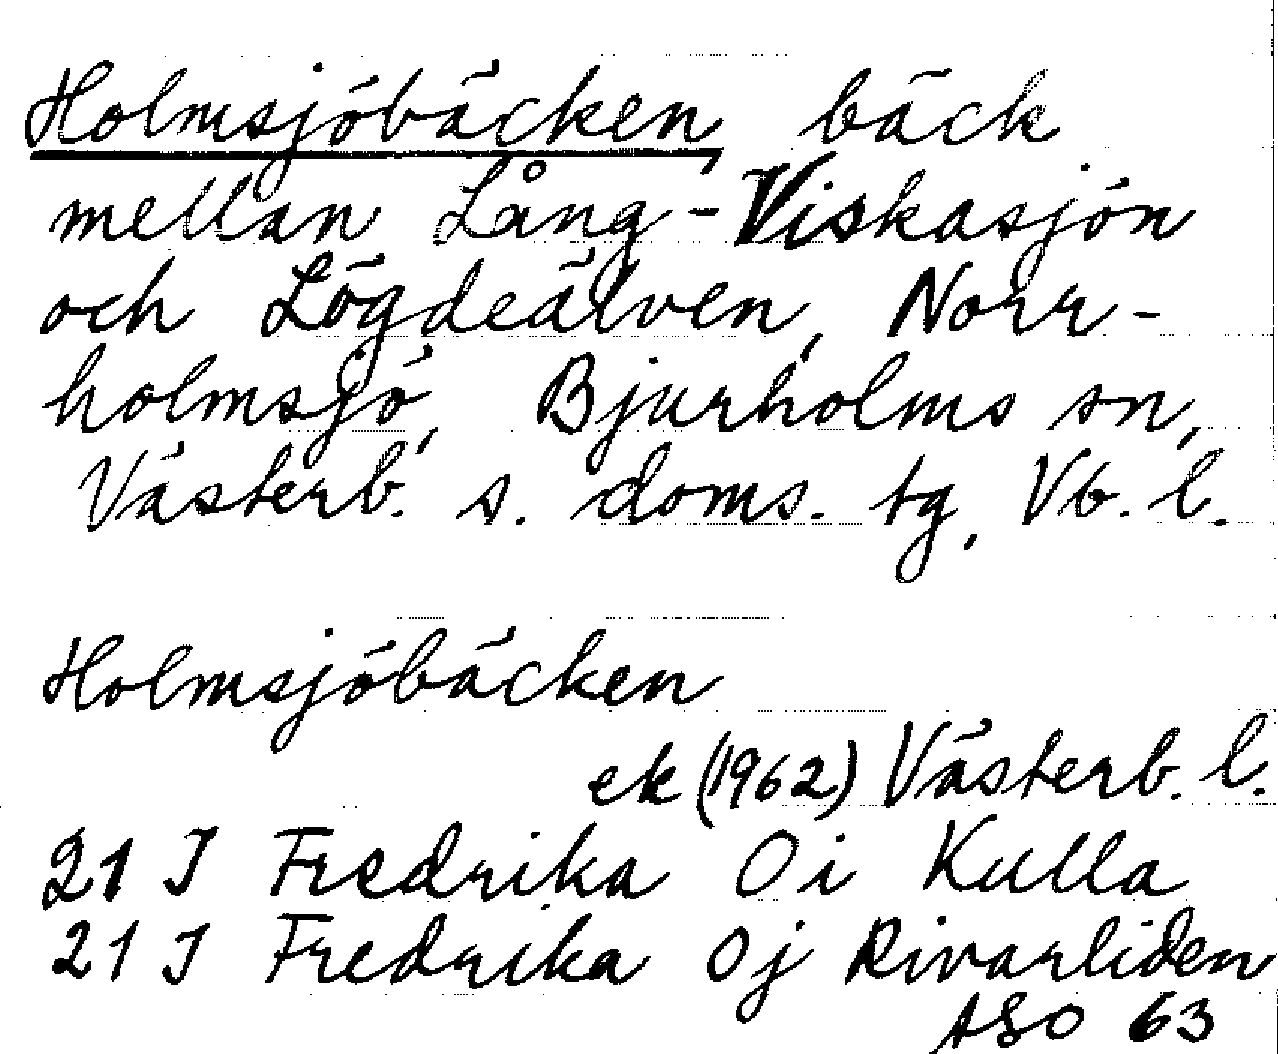 Holmsjöbäcken, bäck
mellan Lång-Viskasjön
och Lögdeälven, Norr-
holmsjö, Bjurholms sn,
Västerb. s. doms. tg, Vb. l.
Holmsjöbäcken
ek (1962) Västerb. l.
21 I Fredrika 0i Kulla
21 I Fredrika 0j Rivarliden
ASO 63